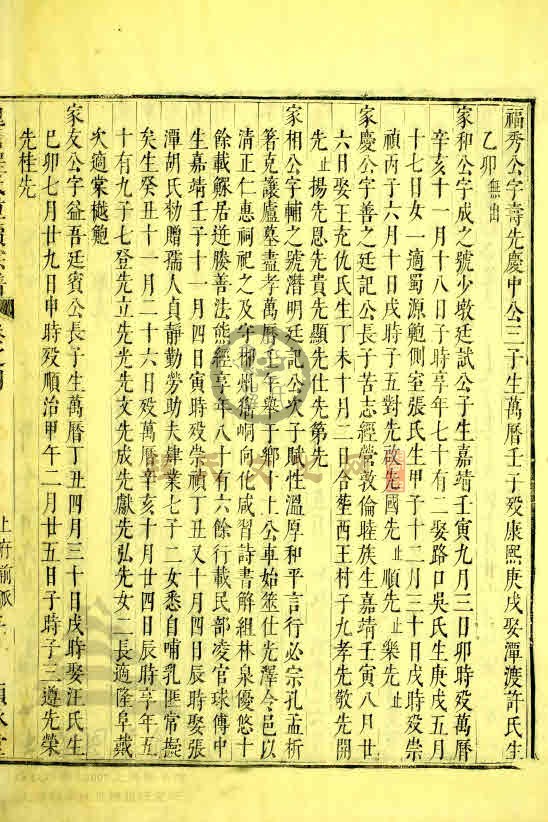 福秀公字壽先慶中公三子生萬曆壬子歿康熙庚戌娶潭渡許氏生
乙卯無出
家和公字成之號少墩廷試公子生嘉靖壬寅九月三日卯時歿萬曆
辛亥十一月十八日子時享年七十有二娶路口吳氏生庚戌五月
十七日女一適蜀源鮑側室張氏生甲子十二月三十日戌時歿崇
禎丙子六月十日戌時子五對先啟先國先止順先止樂先止
家慶公字善之廷記公長子苦志經營敦倫睦族生嘉靖壬寅八月
六日娶王充仇氏生丁未十月二日合塟西王村子九孝先敬先開
先止揚先恩先貴先顯先仕先第先
家相公字輔之號潛明廷記公次子賦性溫厚和平言行必宗孔孟析
箸克讓廬墓盡孝萬曆壬午舉于鄉六上公車始筮仕先澤令邑以
清正仁惠祠祀之及守柳州猺峒向化咸習詩書解組林泉優悠十
餘載觧居迸勝善法熊經享年八十有六餘行載民部凌官球傳中
生嘉靖壬子十一月四日寅時歿崇禎丁丑又十月四日辰時娶張
潭胡氏勅贈孺人貞靜勤勞助夫肄業七子二女悉自哺乳匪常擬
矣生癸丑十一月二十六日歿萬曆辛亥十月廿四日辰時享年五
十有九子七登先立先光先文先成先獻先弘先女二長適隆阜戴
次適棠樾鮑
家友公字益吾廷賓公長子生萬曆丁丑四月三十日戌時娶汪氏生
巳卯七月廿九日申時歿順治甲午二月廿五日子時子三遵先榮
先桂先
上府前派